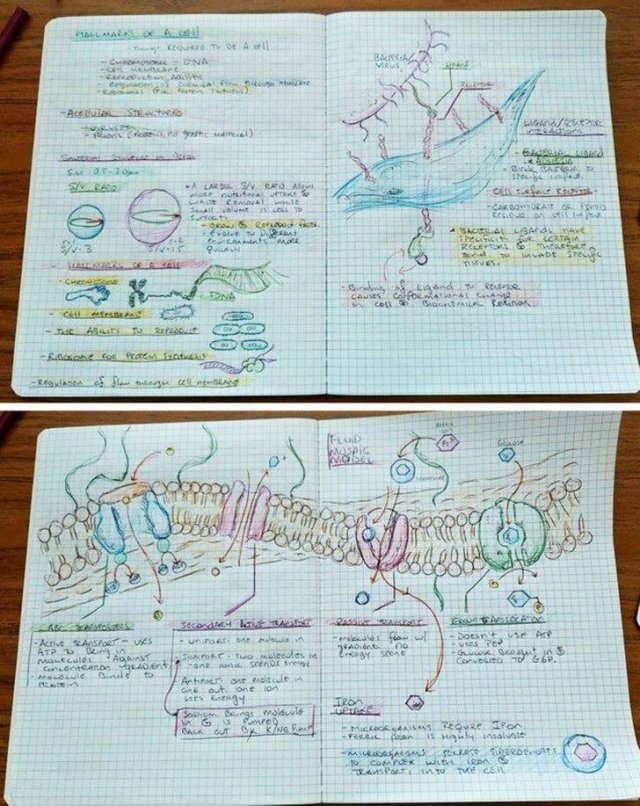 HALLMARKS OF A CELL
- THINGS REQUIRED TO BE A CELL
- CHROMOSOME DNA
- CELL MEMBRANE
- REPRODUCTION ABILITY
- REGULATION OF CHEMICAL FLOW THROUGH MEMBRANE
- RIBOSOMES (FOR PROTEIN SYNTHESIS)
- ACELLULAR STRUCTURES
- VIRUSES
- PRIONS (PROTEINS, NO GENETIC MATERIAL)
BACTERIAL STRUCTURE
S/V RATIO
• A LARGER S/V RATIO ALLOWS
MORE NUTRITIONAL UPTAKE &
WASTE REMOVAL WHILE
SMALL VOLUME IS LESS TO
SUPPORT
- GROW & REPRODUCE FASTER
- EVOLVE TO DIFFERENT
ENVIRONMENTS MORE
QUICKLY
S/V = 3
S/V = 1.5
- HALLMARKS OF A CELL
- CHROMOSOME
DNA
- CELL MEMBRANE
- THE ABILITY TO REPRODUCE
- RIBOSOME FOR PROTEIN SYNTHESIS
- REGULATION OF FLOW THROUGH CELL MEMBRANE
BACTERIA
VIRUS
LIGAND
RECEPTOR
LIGAND/RECEPTOR
INTERACTIONS
BACTERIAL LIGAND
- BIND BACTERIA TO
SPECIFIC
CELL SURFACE RECEPTOR
- CARBOHYDRATE OR
RESIDUE ON CELL SURFACE
• BACTERIAL LIGANDS HAVE
SPECIFICITY FOR CERTAIN
RECEPTORS & THEREFORE
TEND TO INVADE SPECIFIC
TISSUES.
- BINDING OF LIGAND TO RECEPTOR
CAUSES CONFORMATIONAL CHANGE
IN CELL & BIOCHEMICAL REACTION
FLUID
MOSAIC
MODEL
Glucose
ABC TRANSPORTERS
- ACTIVE TRANSPORT - USES
ATP TO BRING IN
MOLECULES AGAINST
CONCENTRATION GRADIENT
- MOLECULE BINDS TO
PROTEIN
SECONDARY ACTIVE TRANSPORT
- UNIPORT: ONE MOLECULE IN
- SYMPORT: TWO MOLECULES IN
ONE IONIC SPENDS ENERGY
ANTIPORT: ONE MOLECULE IN
ONE OUT, ONE ION
USES ENERGY
SODIUM BRINGS MOLECULE
IN & IS PUMPED
BACK OUT BY K/NA PUMP
PASSIVE TRANSPORT
- MOLECULES FLOW W/
GRADIENT NO
ENERGY SPENT
GROUP TRANSLOCATION
- DOESN'T USE ATP
- USES PEP
- GLUCOSE BROUGHT IN &
CONVERTED TO G6P.
IRON
UPTAKE
- MICROORGANISMS REQUIRE IRON
- FERRIC IRON IS HIGHLY INSOLUBLE
- MICROORGANISMS SECRETE SIDEROPHORES
TO COMPLEX WITH IRON &
TRANSPORT INTO THE CELL